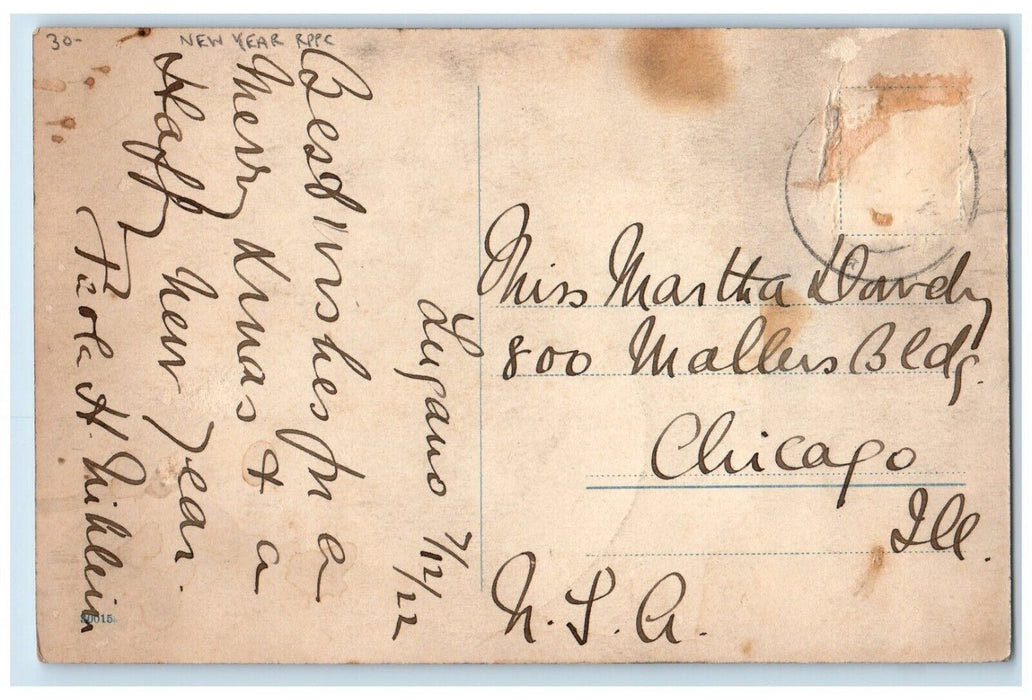 30-
NEW YEAR RPPC
Lugano 7/12/22
Best Wishes for a
Merry Xmas & a
Happy New Year.
H.
Miss Martha Dowdy
800 Mallers Bldg.
Chicago
Ill.
U.S.A.
20015